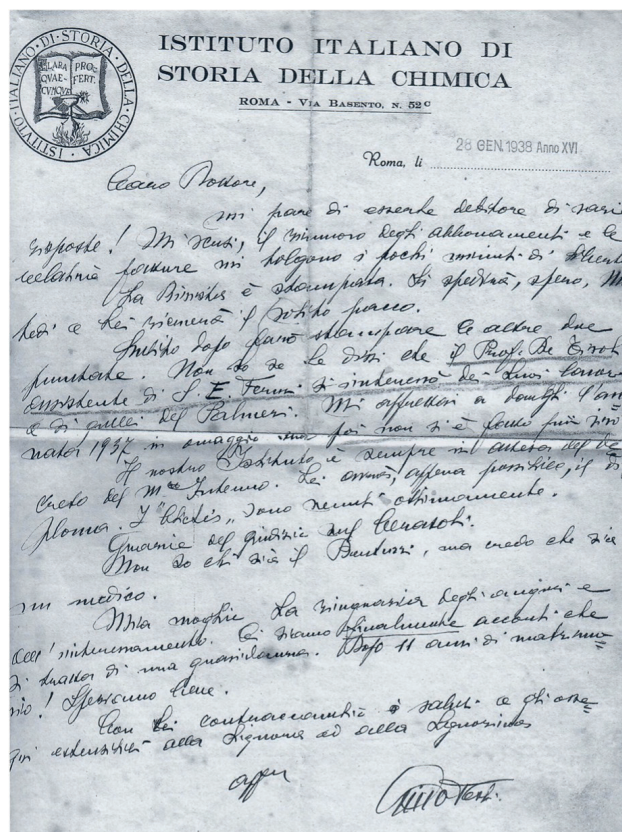 ISTITUTO ITALIANO DI STORIA DELLA CHIMICA
CLARA QUAE-CUNQUE
PROC FERT.
ISTITUTO ITALIANO DI
STORIA DELLA CHIMICA
ROMA - VIA BASENTO, N. 52C
Roma, li 28 GEN.1938 Anno XVI
Caro Dottore,
mi pare di esserle debitore di varie
risposte! Mi scusi, il rinnovo degli abbonamenti e le
relative fatture mi tolgono i pochi minuti di
La è stampata. Si spedirà, spero,
e Lei riceverà il solito pacco.
Subito dopo farò stampare le altre due
puntate. Non so se Le dissi che il Prof. De
assistente di S. E. Fermi si interessò dei Suoi lavori
e di quelli del Palmieri. Mi affrettai a dargli
1937 in omaggio ma poi non si è fatto più
Il nostro Istituto è sempre in attesa del de
creto del M. Interno. Lei avrà, appena possibile, il di
ploma. I sono venuti ottimamente.
Grazie del giudizio sul
Non so chi sia il, ma credo che sia
un medico.
Mia moglie La ringrazia degli auguri e
dell'interessamento. Ci siamo finalmente accorti che
si tratta di una gravidanza. Dopo 11 anni di matrimo
nio! Speriamo bene.
Con Lei saluti e gli osse
qui estensibili alla Signora ed alla Signorina